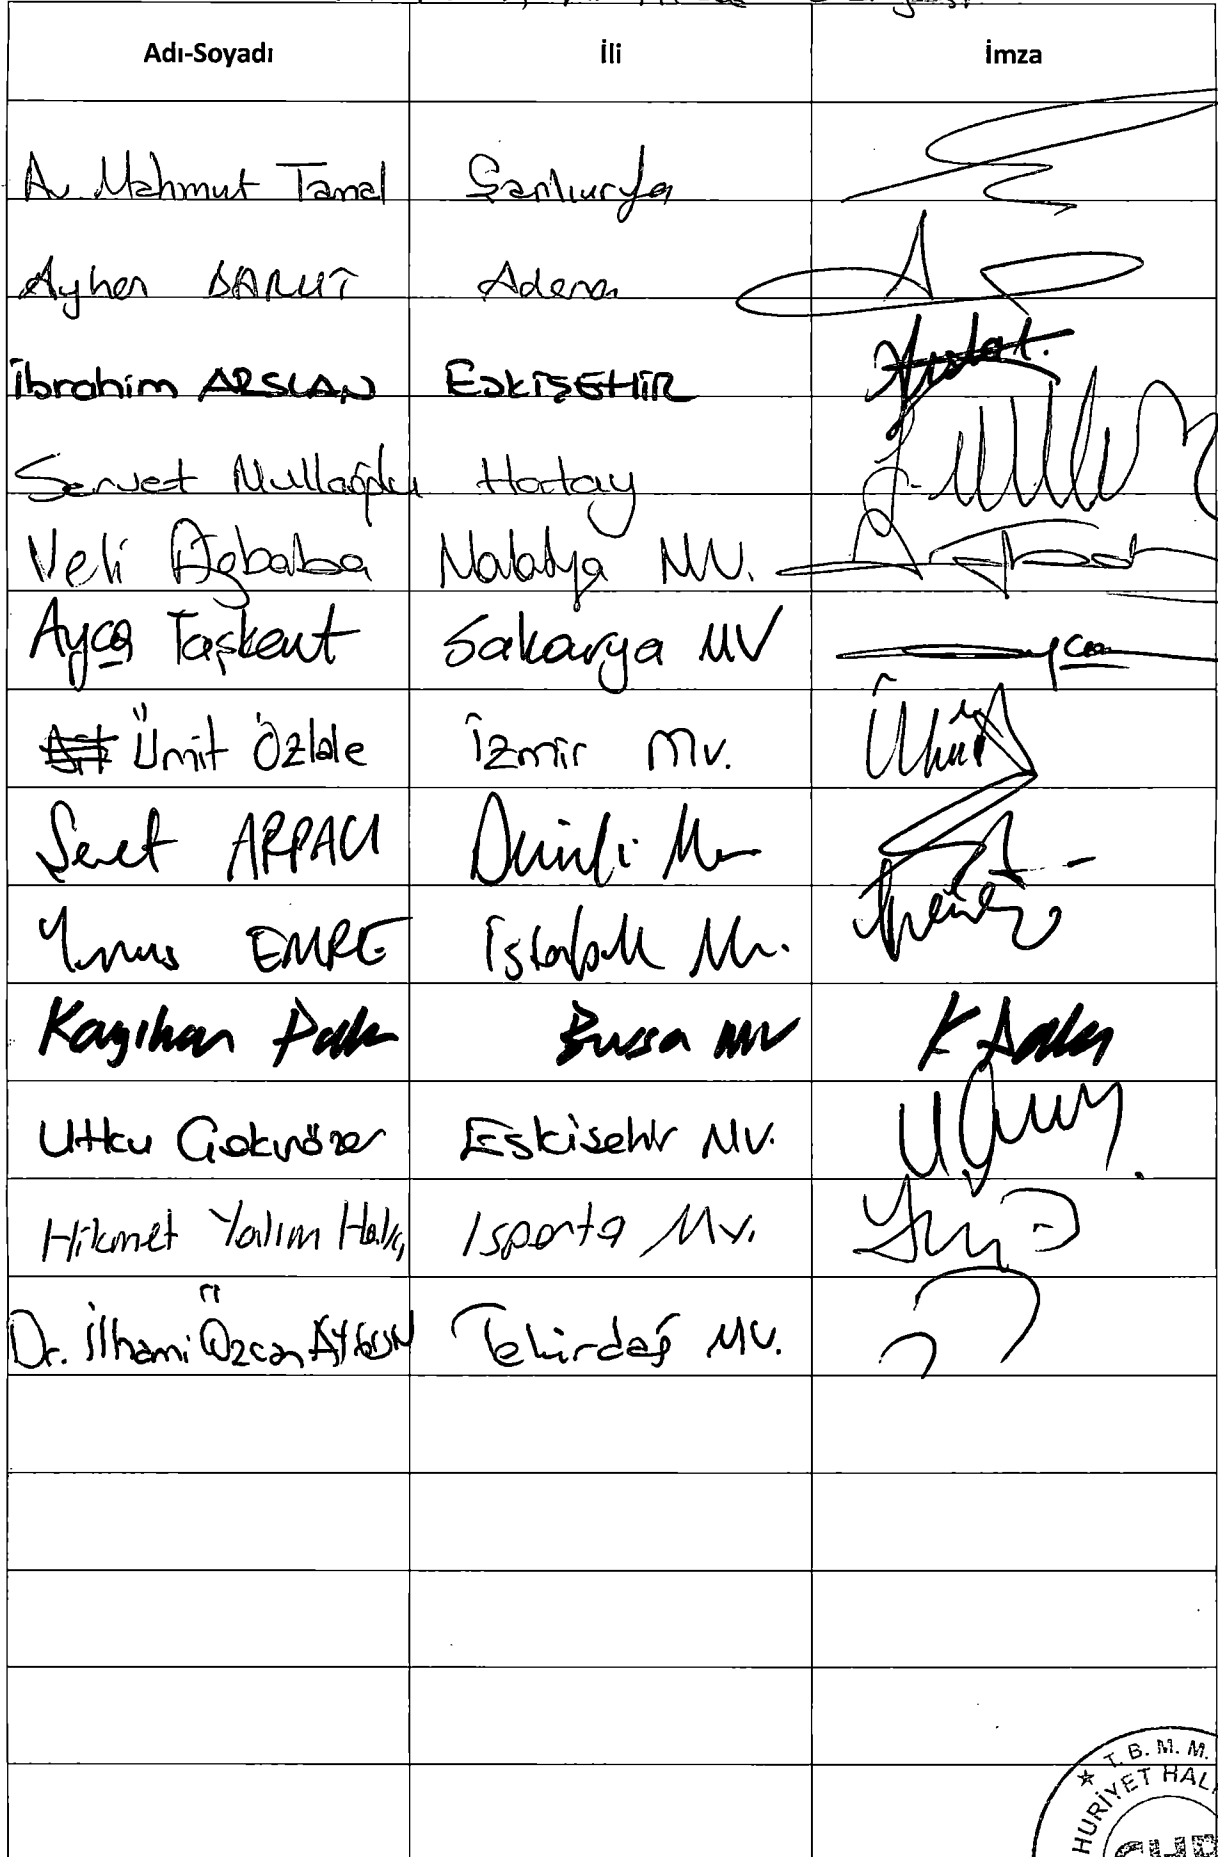 Adı-Soyadı İli İmza
Av. Mahmut Tanal Şanlıurfa
Ayhan BARUT Adana
İbrahim ARSLAN ESKİŞEHİR
Servet Mullaoğlu Hatay
Veli Ağbaba Malatya MV.
Ayça Taşkent Sakarya MV Ayça
Ümit Özlale İzmir Mv. Ümit
Seref ARPACI Denizli Mv
Yunus EMRE İstanbul Mv.
Kayıhan Pala Bursa MV K Pala
Utku Çakırözer Eskişehir MV.
Hikmet Yalım Halıcı Isparta Mv.
Dr. İlhami Özcan AYGUN Tekirdağ MV.
T. B. M. M.
HURİYET HAL
CHP